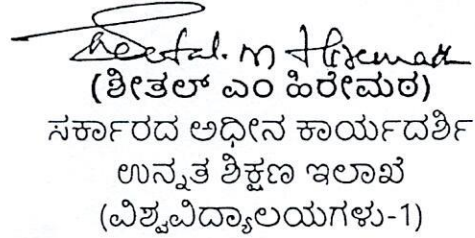 Sheetal. M Hiremath
(ಶೀತಲ್ ಎಂ ಹಿರೇಮಠ)
ಸರ್ಕಾರದ ಅಧೀನ ಕಾರ್ಯದರ್ಶಿ
ಉನ್ನತ ಶಿಕ್ಷಣ ಇಲಾಖೆ
(ವಿಶ್ವವಿದ್ಯಾಲಯಗಳು-1)